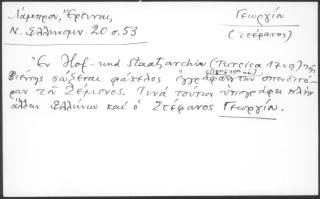 Λάμπρου, Ἔρευναι,
Γεωργίου
Ν. Ἑλληνομν. 20 σ. 53
(Στέφανος)
Ἐν Hof- und Staatsarchiv (Turcica 1769) τῆς
Βιέννης σώζεται φάκελος ἐγγράφων τῶν
ρων τοῦ Ζέμονος. Τινὰ τούτων ὑπογράφει πλὴν
ἄλλων Ἑλλήνων καὶ ὁ Στέφανος Γεωργίου.